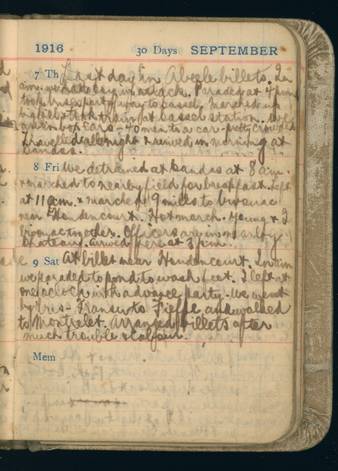 1916 30 Days SEPTEMBER
7 Th Last day in Abeele billets. In
a.m. we take easy in a shack. Paraded at 4 p.m.
took buses part of way to Cassel. Marched up
hill & took train at Cassel station. We
in box cars - 40 men to a car - pretty crowded
Travelled all night & arrived in morning at
Candas.
8 Fri We detrained at Candas at 8 a.m.
& marched to nearby field for breakfast. Left
at 11 a.m. & marched 9 miles to bivouac
near Herdencourt. Hot march. Young & I
bivouac together. Officers are in nearby
Chateau. Arrived here at 3 p.m.
9 Sat At billet near Herdencourt. In a.m.
we paraded to pond to wash feet. I left at
one o'clock with advance party. We went
by Fransu to Fieffe and walked
to Montrelet. Arranged billets after
much trouble &
Mem